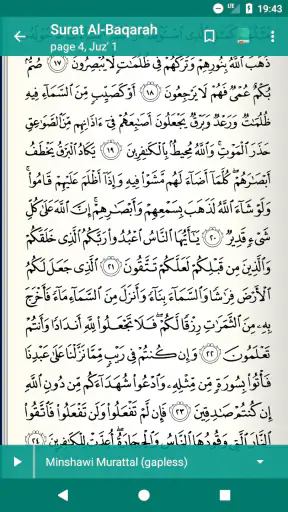 19:43
Surat Al-Baqarah
page 4, Juz' 1
ذَهَبَ ٱللَّهُ بِنُورِهِمْ وَتَرَكَهُمْ فِى ظُلُمَٰتٍ لَّا يُبْصِرُونَ ١٧ صُمٌّۢ
بُكْمٌ عُمْىٌ فَهُمْ لَا يَرْجِعُونَ ١٨ أَوْ كَصَيِّبٍ مِّنَ ٱلسَّمَآءِ فِيهِ
ظُلُمَٰتٌ وَرَعْدٌ وَبَرْقٌ يَجْعَلُونَ أَصَٰبِعَهُمْ فِىٓ ءَاذَانِهِم مِّنَ ٱلصَّوَٰعِقِ
حَذَرَ ٱلْمَوْتِ ۚ وَٱللَّهُ مُحِيطٌۢ بِٱلْكَٰفِرِينَ ١٩ يَكَادُ ٱلْبَرْقُ يَخْطَفُ
أَبْصَٰرَهُمْ ۖ كُلَّمَآ أَضَآءَ لَهُم مَّشَوْا۟ فِيهِ وَإِذَآ أَظْلَمَ عَلَيْهِمْ قَامُوا۟ ۚ
وَلَوْ شَآءَ ٱللَّهُ لَذَهَبَ بِسَمْعِهِمْ وَأَبْصَٰرِهِمْ ۚ إِنَّ ٱللَّهَ عَلَىٰ كُلِّ
شَىْءٍ قَدِيرٌ ٢٠ يَٰٓأَيُّهَا ٱلنَّاسُ ٱعْبُدُوا۟ رَبَّكُمُ ٱلَّذِى خَلَقَكُمْ
وَٱلَّذِينَ مِن قَبْلِكُمْ لَعَلَّكُمْ تَتَّقُونَ ٢١ ٱلَّذِى جَعَلَ لَكُمُ
ٱلْأَرْضَ فِرَٰشًا وَٱلسَّمَآءَ بِنَآءً وَأَنزَلَ مِنَ ٱلسَّمَآءِ مَآءً فَأَخْرَجَ
بِهِۦ مِنَ ٱلثَّمَرَٰتِ رِزْقًا لَّكُمْ ۖ فَلَا تَجْعَلُوا۟ لِلَّهِ أَندَادًا وَأَنتُمْ
تَعْلَمُونَ ٢٢ وَإِن كُنتُمْ فِى رَيْبٍ مِّمَّا نَزَّلْنَا عَلَىٰ عَبْدِنَا
فَأْتُوا۟ بِسُورَةٍ مِّن مِّثْلِهِۦ وَٱدْعُوا۟ شُهَدَآءَكُم مِّن دُونِ ٱللَّهِ
إِن كُنتُمْ صَٰدِقِينَ ٢٣ فَإِن لَّمْ تَفْعَلُوا۟ وَلَن تَفْعَلُوا۟ فَٱتَّقُوا۟
ٱلنَّارَ ٱلَّتِى وَقُودُهَا ٱلنَّاسُ وَٱلْحِجَارَةُ ۖ أُعِدَّتْ لِلْكَٰفِرِينَ ٢٤
Minshawi Murattal (gapless)